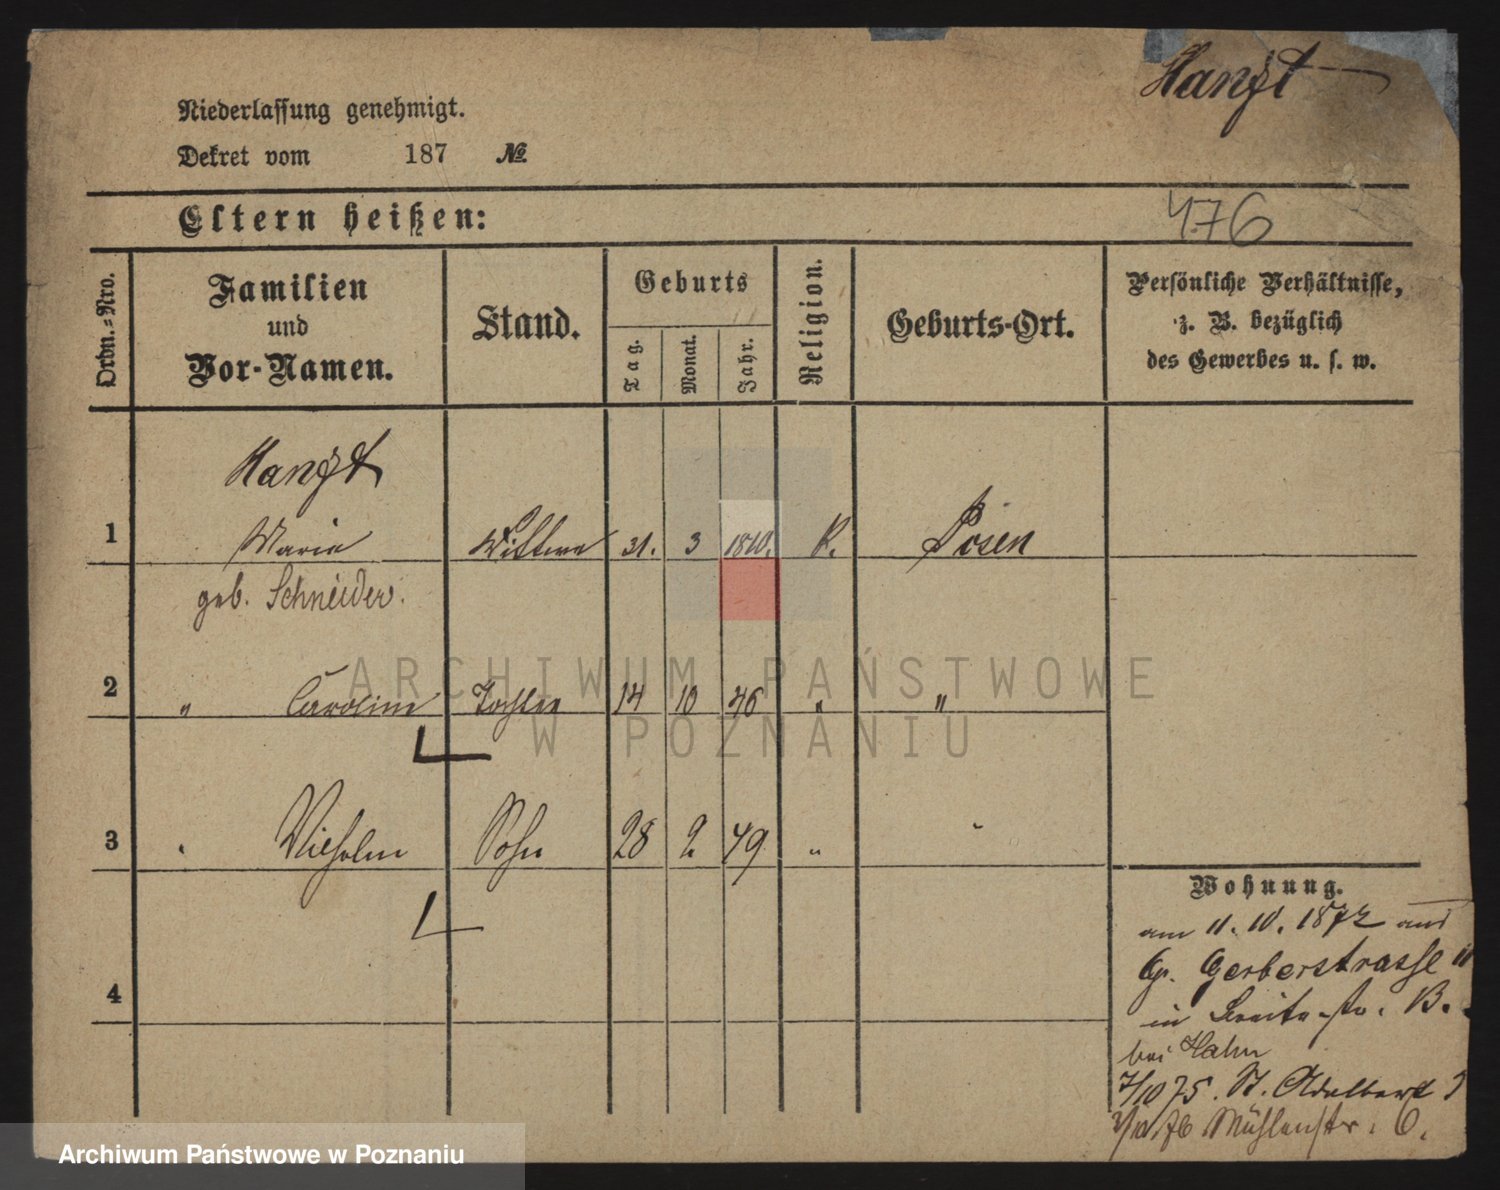 Hanft
Niederlassung genehmigt.
Dekret vom 187 No.
Eltern heißen:
476
Ordn.=Nro.
Familien
und
Vor-Namen.
Stand.
Geburts
Tag.
Monat.
Jahr.
Religion.
Geburts-Ort.
Persönliche Verhältnisse,
z. B. bezüglich
des Gewerbes u. s. w.
Hanft
1 Marie Wittwe 31. 3 1810. K. Posen
geb. Schneider.
2 " Caroline Tochter 14 10 46 " "
3 " Wilhelm Sohn 28 2 49 "
4
Wohnung.
am 11. 10. 1872 aus
Gr. Gerberstrasse
in Breite-str.
bei Hahn
7/10 75. St. Adalbert
76 Mühlenstr. 6.
ARCHIWUM PAŃSTWOWE
W POZNANIU
Archiwum Państwowe w Poznaniu